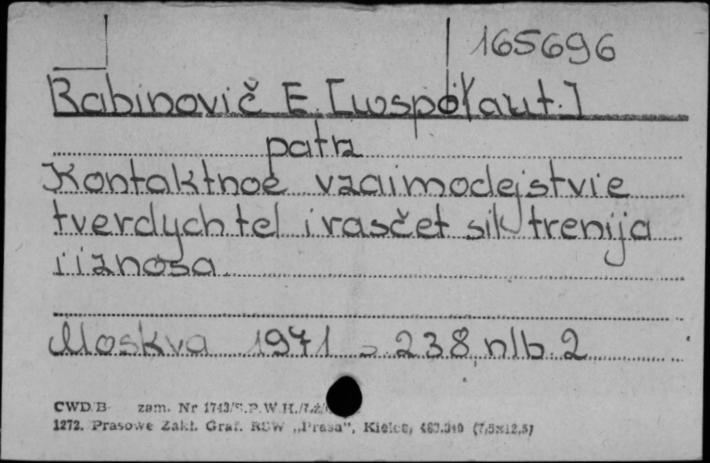 165696
Rabinovič E. [współaut.]
patrz
Kontaktnoe vzaimodejstvie
tverdych tel i rasčet sił trenija
i iznosa.
Moskva 1971 s. 238, nlb. 2
CWD/B zam. Nr 1743/S.P.W.H./
1272. Prasowe Zakł. Graf. RSW „Prasa”, Kielce, (7,5x12,5)